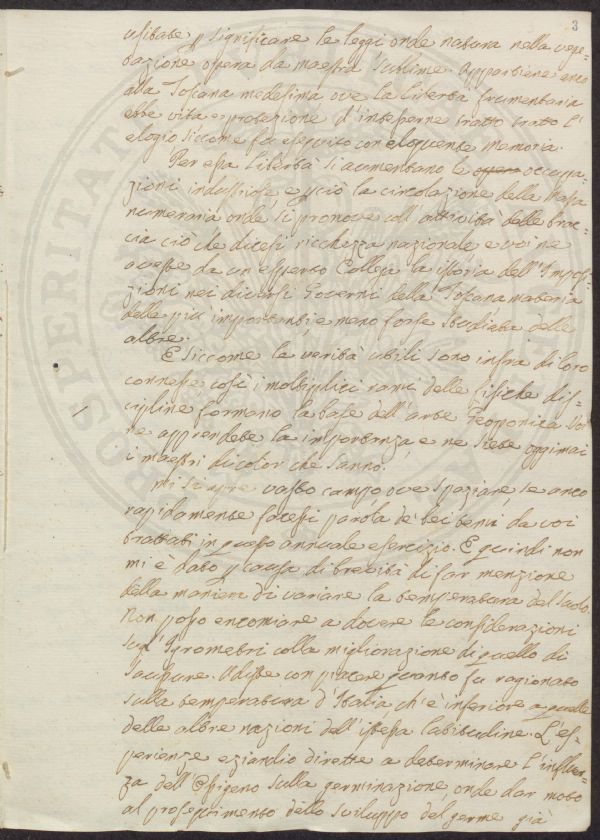 3
usitate p significare le leggi onde natura nella vege-
tazione opera da maestra sublime. Appartiene anco
alla Toscana medesima ove la libertà frumentaria
ebbe vita e protezione d'intesserne tratto tratto l'
elogio siccome fu eseguito con eloquente memoria.
Per essa libertà si aumentano le occupa
zioni industriose, e pciò la circolazione della massa
numeraria onde si promove coll'attività delle brac-
cia ciò che dicesi ricchezza nazionale e voi ne
aveste da un esperto Collega la istoria dell'Impos-
zioni nei diversi Governi della Toscana materia
delle più importanti e meno forse studiata delle
altre.
E siccome le verità utili sono infra di loro
connesse così i moltiplici rami delle fisiche dis-
cipline formano la base dell'arte Geoponica voi
ne apprendete la importanza, e ne siete oggimai
i maestri di color che sanno.
Mi si apre vasto campo ove spaziare, se anco
rapidamente facessi parola de' bei temi da voi
trattati in questo annuale esercizio. E quindi non
mi è dato p causa di brevità di far menzione
della maniera di variare la temperatura del suolo.
Non posso encomiare a dovere le considerazioni
sugl'Igrometri colla migliorazione di quello di
Saussure. Udiste con piacere quanto fu ragionato
sulla temperatura d'Italia ch'è inferiore a quella
delle altre nazioni dell'istessa latitudine. L'es-
perienze eziandio dirette a determinare l'influen-
za dell'Ossigeno sulla germinazione, onde dar moto
al proseguimento dello sviluppo del germe già